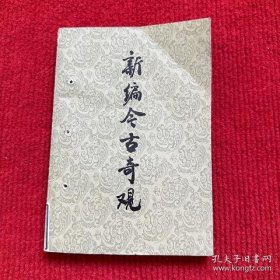 新编今古奇观
孔夫子旧书网